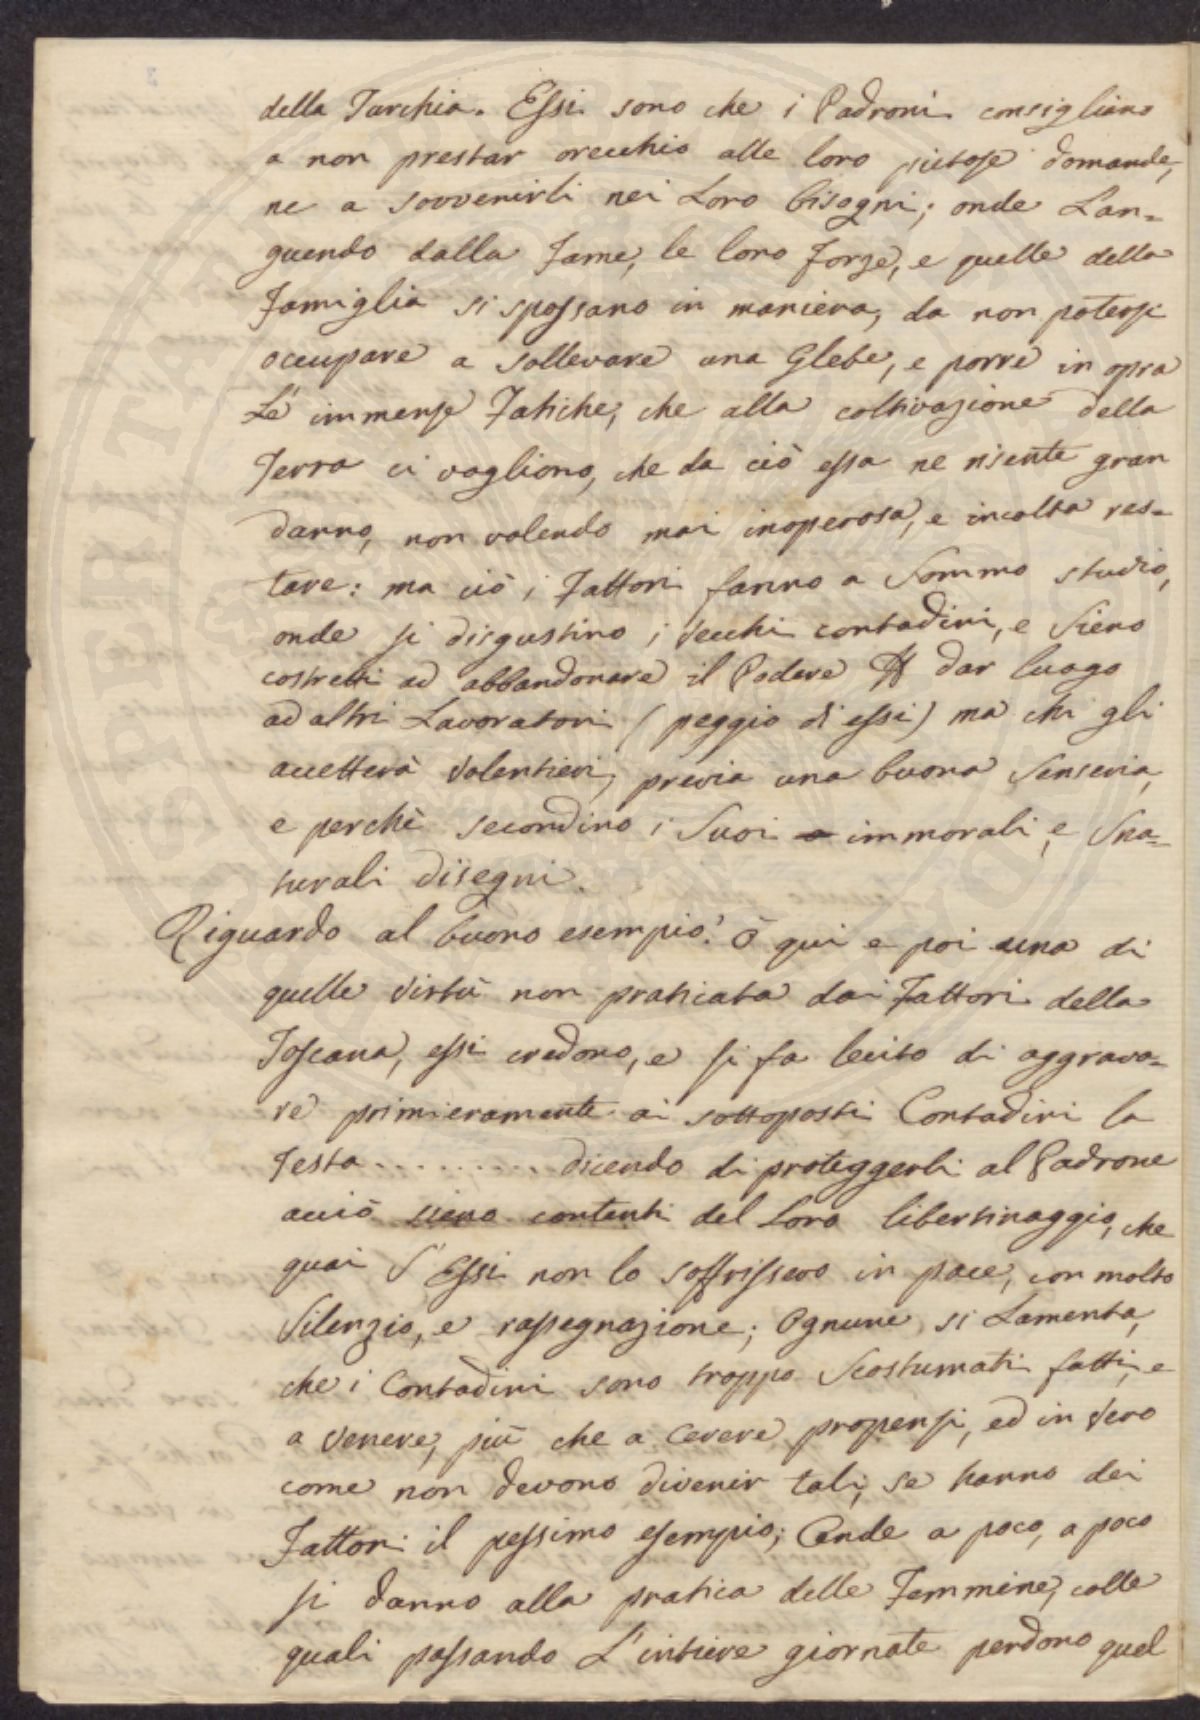 della Turchia. Essi sono che i Padroni consigliano
a non prestar orecchio alle loro pietose domande,
ne a sovvenirli nei Loro bisogni; onde Lan=
guendo dalla fame, le loro forze, e quelle della
famiglia si spossano in maniera, da non potersi
occupare a sollevare una Glebe, e porre in opra
Le immense fatiche, che alla coltivazione della
Terra ci vogliono, che da ciò essa ne risente gran
danno, non volendo mai inoperosa, e incolta res=
tare: ma ciò i Fattori fanno a Sommo studio,
onde si disgustino i Vecchi contadini, e Sieno
costretti ad abbandonare il Podere dar luogo
ad altri Lavoratori (peggio di essi) ma chi gli
accetterà Volentieri, previa una buona Senseria,
e perchè secondino i Suoi immorali, e Sna=
turali disegni.
Riguardo al buono esempio! ò qui e poi una di
quelle Virtù non praticata dai Fattori della
Toscana, essi credono, e si fa lecito di aggrava=
re primieramente ai sottoposti Contadini la
Testa ......... dicendo di proteggerli al Padrone
acciò sieno contenti del Loro libertinaggio, che
guai S' Essi non lo soffrissero in pace, con molto
Silenzio, e rassegnazione; Ognune si Lamenta,
che i Contadini sono troppo Scostumati fatti, e
a Venere, più che a Cerere propensi, ed in Vero
come non devono divenir tali, se hanno dei
Fattori il pessimo esempio; Onde a poco, a poco
si danno alla pratica delle Femmine, colle
quali passando L'intiere giornate perdono quel